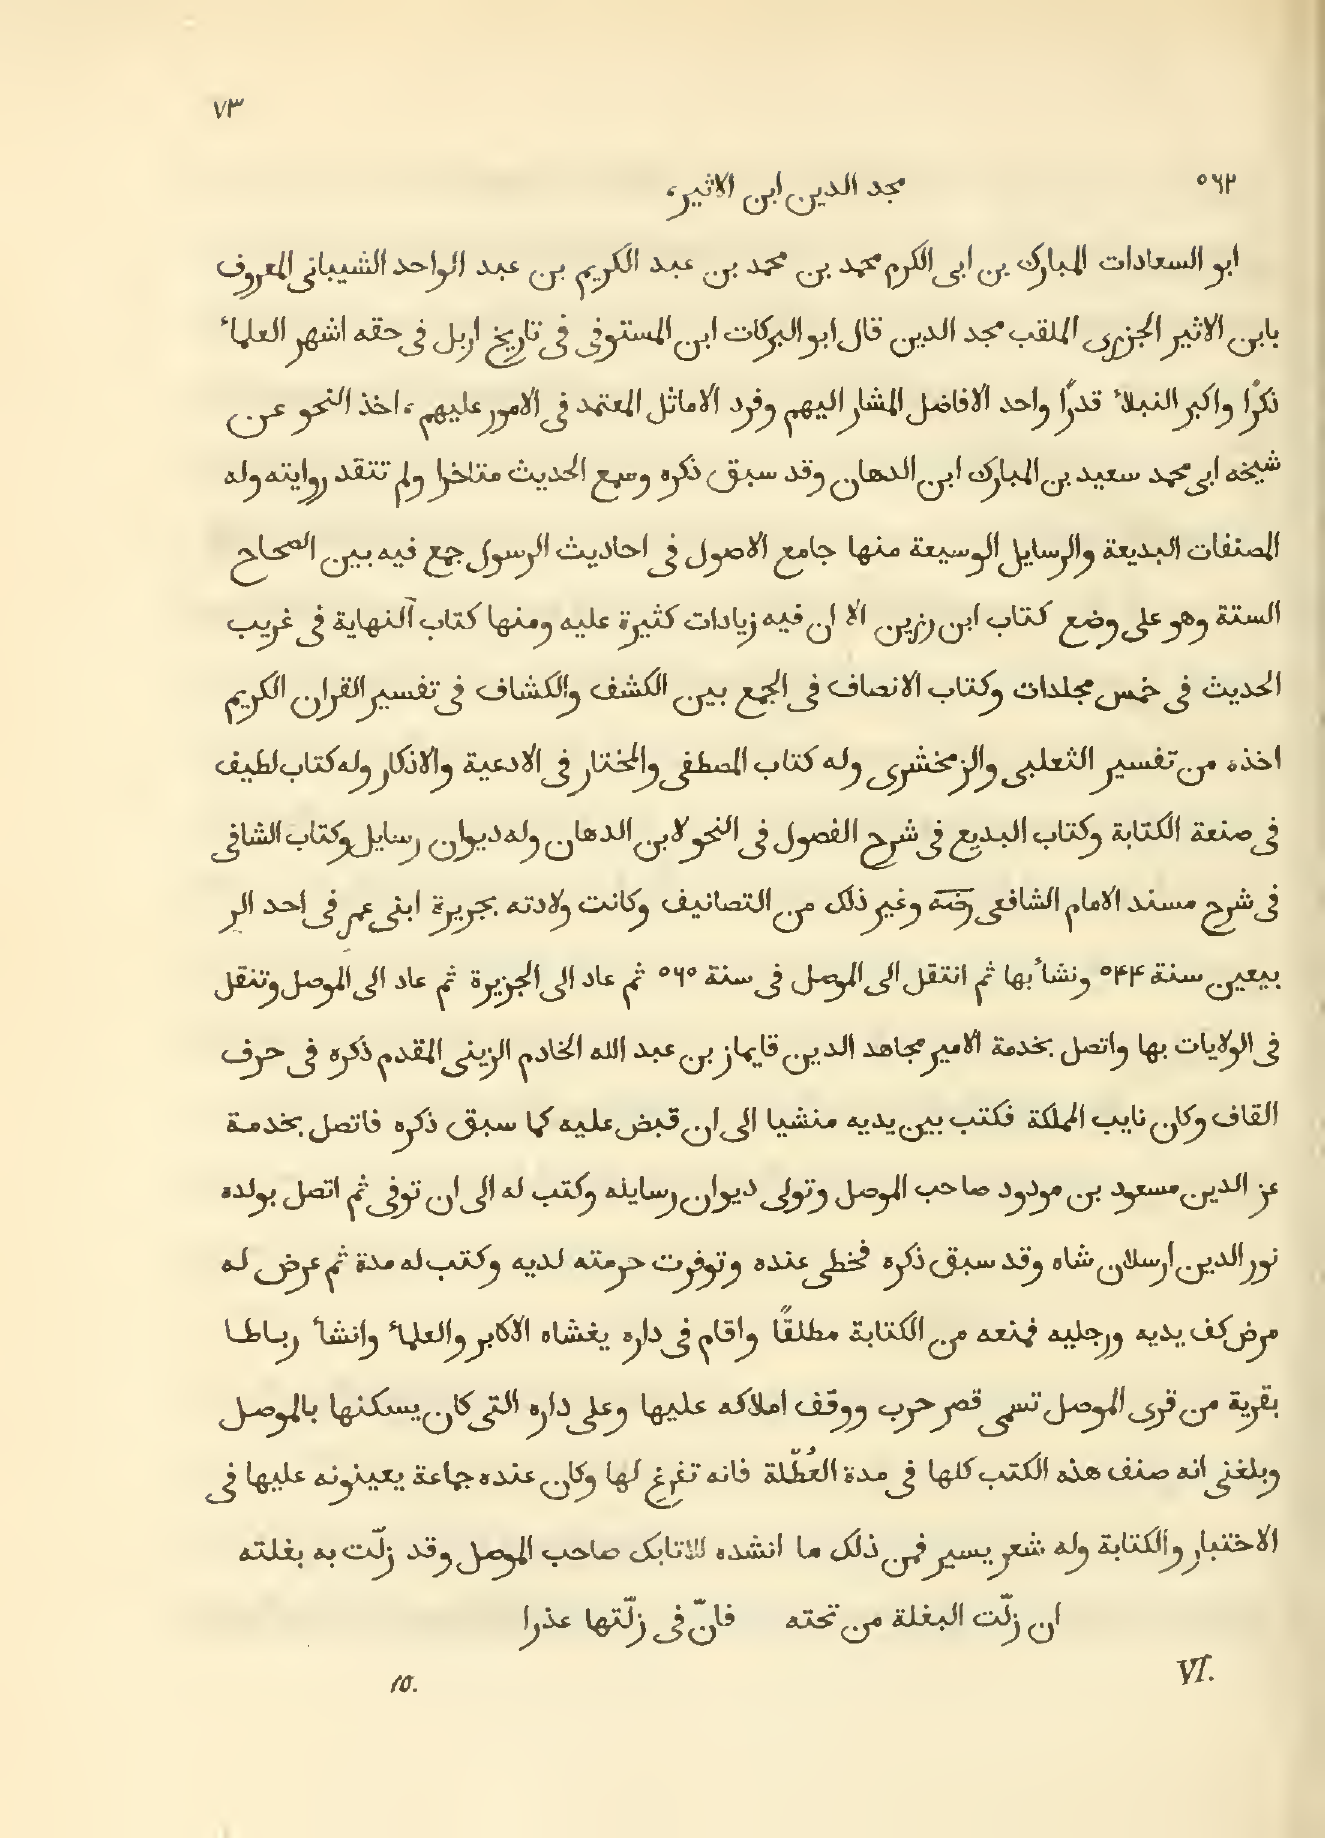 ٧٣
٥٦٢ مجد الدين ابن الاثير،
ابو السعادات المبارك بن ابى الكرم محمد بن محمد بن عبد الكريم بن عبد الواحد الشيبانى المعروف
بابن الاثير الجزرى الملقب مجد الدين قال ابو البركات ابن المستوفى فى تاريخ اربل فى حقه اشهر العلمآ
ذكرًا واكبر النبلآ قدرًا واحد الافاضل المشار اليهم وفرد الاماثل المعتمد فى الامور عليهم، اخذ النحو عن
شيخه ابى محمد سعيد بن المبارك ابن الدهان وقد سبق ذكره وسمع الحديث متاخرا ولم تتقد روايته وله
المصنفات البديعة والرسايل الوسيعة منها جامع الاصول فى احاديث الرسول جمع فيه بين الصحاح
الستة وهو على وضع كتاب ابن رزين الا ان فيه زيادات كثيرة عليه ومنها كتاب النهاية فى غريب
الحديث فى خمس مجلدات وكتاب الانصاف فى الجمع بين الكشف والكشاف فى تفسير القران الكريم
اخذه من تفسير الثعلبى والزمخشرى وله كتاب المصطفى والمختار فى الادعية والاذكار وله كتاب لطيف
فى صنعة الكتابة وكتاب البديع فى شرح الفصول فى النحو لابن الدهان وله ديوان رسايل وكتاب الشافى
فى شرح مسند الامام الشافعى وغير ذلك من التصانيف وكانت ولادته بجريرة ابنى عمر فى احد الر
بيعين سنة ٥۴۴ ونشأ بها ثم انتقل الى الموصل فى سنة ٥٦٥ ثم عاد الى الجزيرة ثم عاد الى الموصل وتنقل
فى الولايات بها واتصل بخدمة الامير مجاهد الدين قايماز بن عبد الله الخادم الزينى المقدم ذكره فى حرف
القاف وكان نايب المملكة فكتب بين يديه منشيا الى ان قبض عليه كما سبق ذكره فاتصل بخدمة
عز الدين مسعود بن مودود صاحب الموصل وتولى ديوان رسايله وكتب له الى ان توفى ثم اتصل بولده
نور الدين ارسلان شاه وقد سبق ذكره فحظى عنده وتوفرت حرمته لديه وكتب له مدة ثم عرض له
مرض كف يديه ورجليه فمنعه من الكتابة مطلقًا واقام فى داره يغشاه الاكابر والعلمآ وانشأ رباطا
بقرية من قرى الموصل تسمى قصر حرب ووقف املاكه عليها وعلى داره التى كان يسكنها بالموصل
وبلغنى انه صنف هذه الكتب كلها فى مدة العُطّلة فانه تفرغ لها وكان عنده جماعة يعينونه عليها فى
الاختبار والكتابة وله شعر يسير فمن ذلك ما انشده للاتابك صاحب الموصل وقد زلّت به بغلته
ان زلّت البغلة من تحته فانّ فى زلّتها عذرا
VI. ١٥.